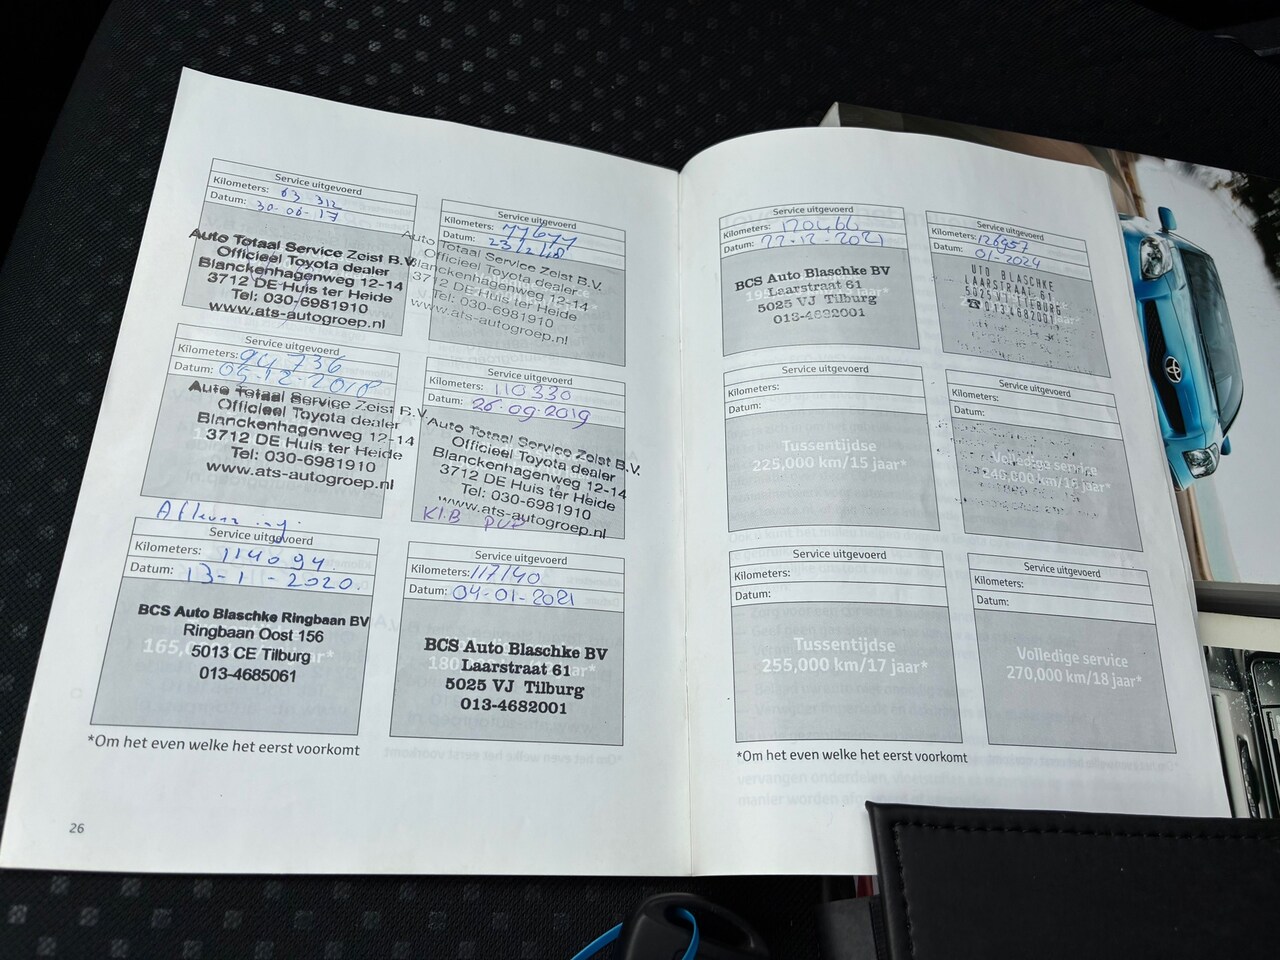 Service uitgevoerd
Kilometers: 63 312
Datum: 30-06-17
Auto Totaal Service Zeist B.V.
Officieel Toyota dealer
Blanckenhagenweg 12-14
3712 DE Huis ter Heide
Tel: 030-6981910
www.ats-autogroep.nl
Service uitgevoerd
Kilometers: 77677
Datum:
Auto Totaal Service Zeist B.V.
Officieel Toyota dealer
Blanckenhagenweg 12-14
3712 DE Huis ter Heide
Tel: 030-6981910
www.ats-autogroep.nl
Service uitgevoerd
Kilometers: 94 736
Datum: 05-12-2018
Auto Totaal Service Zeist B.V.
Officieel Toyota dealer
Blanckenhagenweg 12-14
3712 DE Huis ter Heide
Tel: 030-6981910
www.ats-autogroep.nl
Service uitgevoerd
Kilometers: 110330
Datum: 26-09-2019
Auto Totaal Service Zeist B.V.
Officieel Toyota dealer
Blanckenhagenweg 12-14
3712 DE Huis ter Heide
Tel: 030-6981910
www.ats-autogroep.nl
Aflevering.
Service uitgevoerd
Kilometers: 114094
Datum: 13-1-2020.
BCS Auto Blaschke Ringbaan BV
Ringbaan Oost 156
5013 CE Tilburg
013-4685061
Service uitgevoerd
Kilometers: 117140
Datum: 04-01-2021
BCS Auto Blaschke BV
Laarstraat 61
5025 VJ Tilburg
013-4682001
*Om het even welke het eerst voorkomt
26
Service uitgevoerd
Kilometers: 120466
Datum: 22-12-2021
BCS Auto Blaschke BV
Laarstraat 61
5025 VJ Tilburg
013-4682001
Service uitgevoerd
Kilometers: 126957
Datum: 01-2024
UTO BLASCHKE
LAARSTRAAT 61
5025 VJ TILBURG
☎ 013-4682001
Service uitgevoerd
Kilometers:
Datum:
Tussentijdse
225,000 km/15 jaar*
Service uitgevoerd
Kilometers:
Datum:
Volledige service
240,000 km/16 jaar*
Service uitgevoerd
Kilometers:
Datum:
Tussentijdse
255,000 km/17 jaar*
Service uitgevoerd
Kilometers:
Datum:
Volledige service
270,000 km/18 jaar*
*Om het even welke het eerst voorkomt